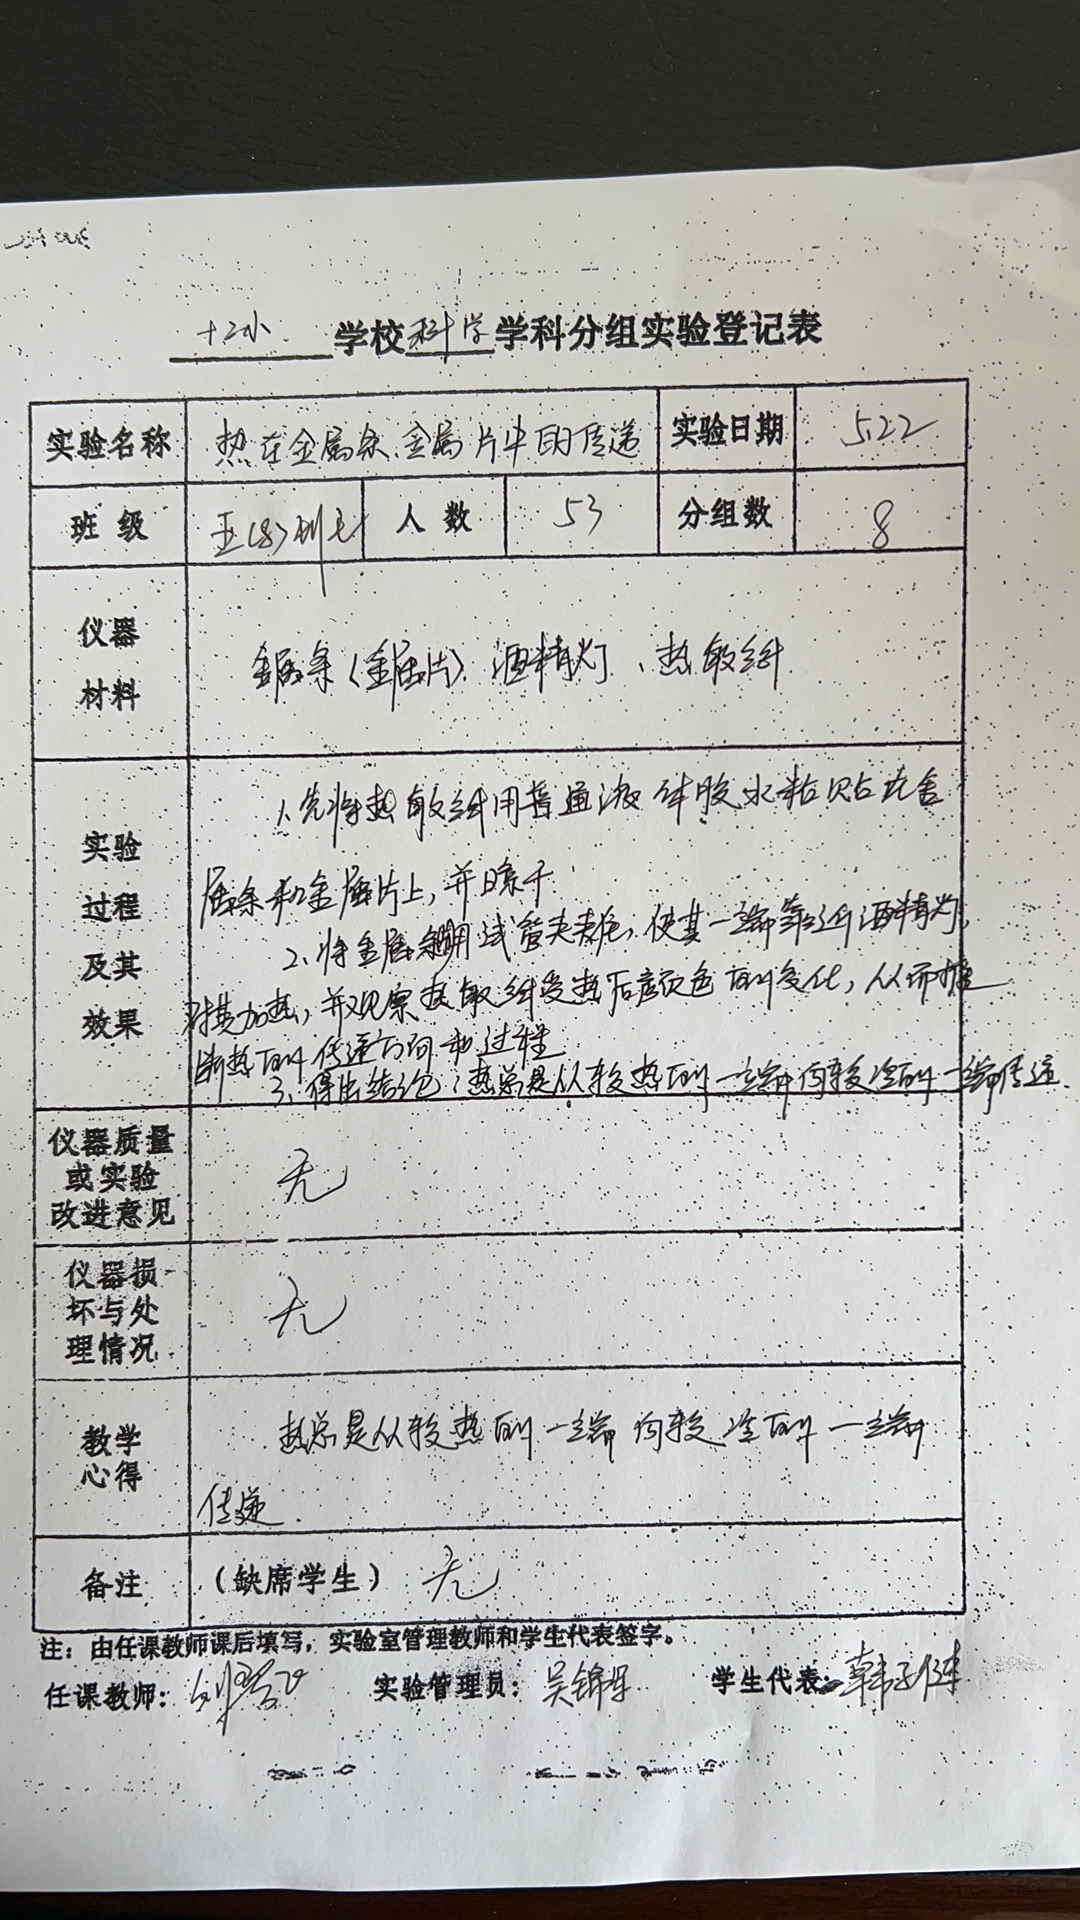 十二小学校科学学科分组实验登记表
实验名称 热在金属条、金属片中的传递 实验日期 5.22
班级 五(8) 人数 53 分组数 8
仪器材料 金属条(金属片)、酒精灯、热敏纸
实验过程及其效果
1、先将热敏纸用普通液体胶水粘贴在金
属条和金属片上,并晾干.
2、将金属条用试管夹夹住,使其一端靠近酒精灯,
对其加热,并观察热敏纸受热后颜色的变化,从而推
断热的传递方向和过程
3、得出结论:热总是从较热的一端向较冷的一端传递.
仪器质量或实验改进意见 无
仪器损坏与处理情况 无
教学心得 热总是从较热的一端向较冷的一端
传递.
备注 (缺席学生) 无
注:由任课教师课后填写,实验室管理教师和学生代表签字。
任课教师: 实验管理员:吴锦 学生代表:韩